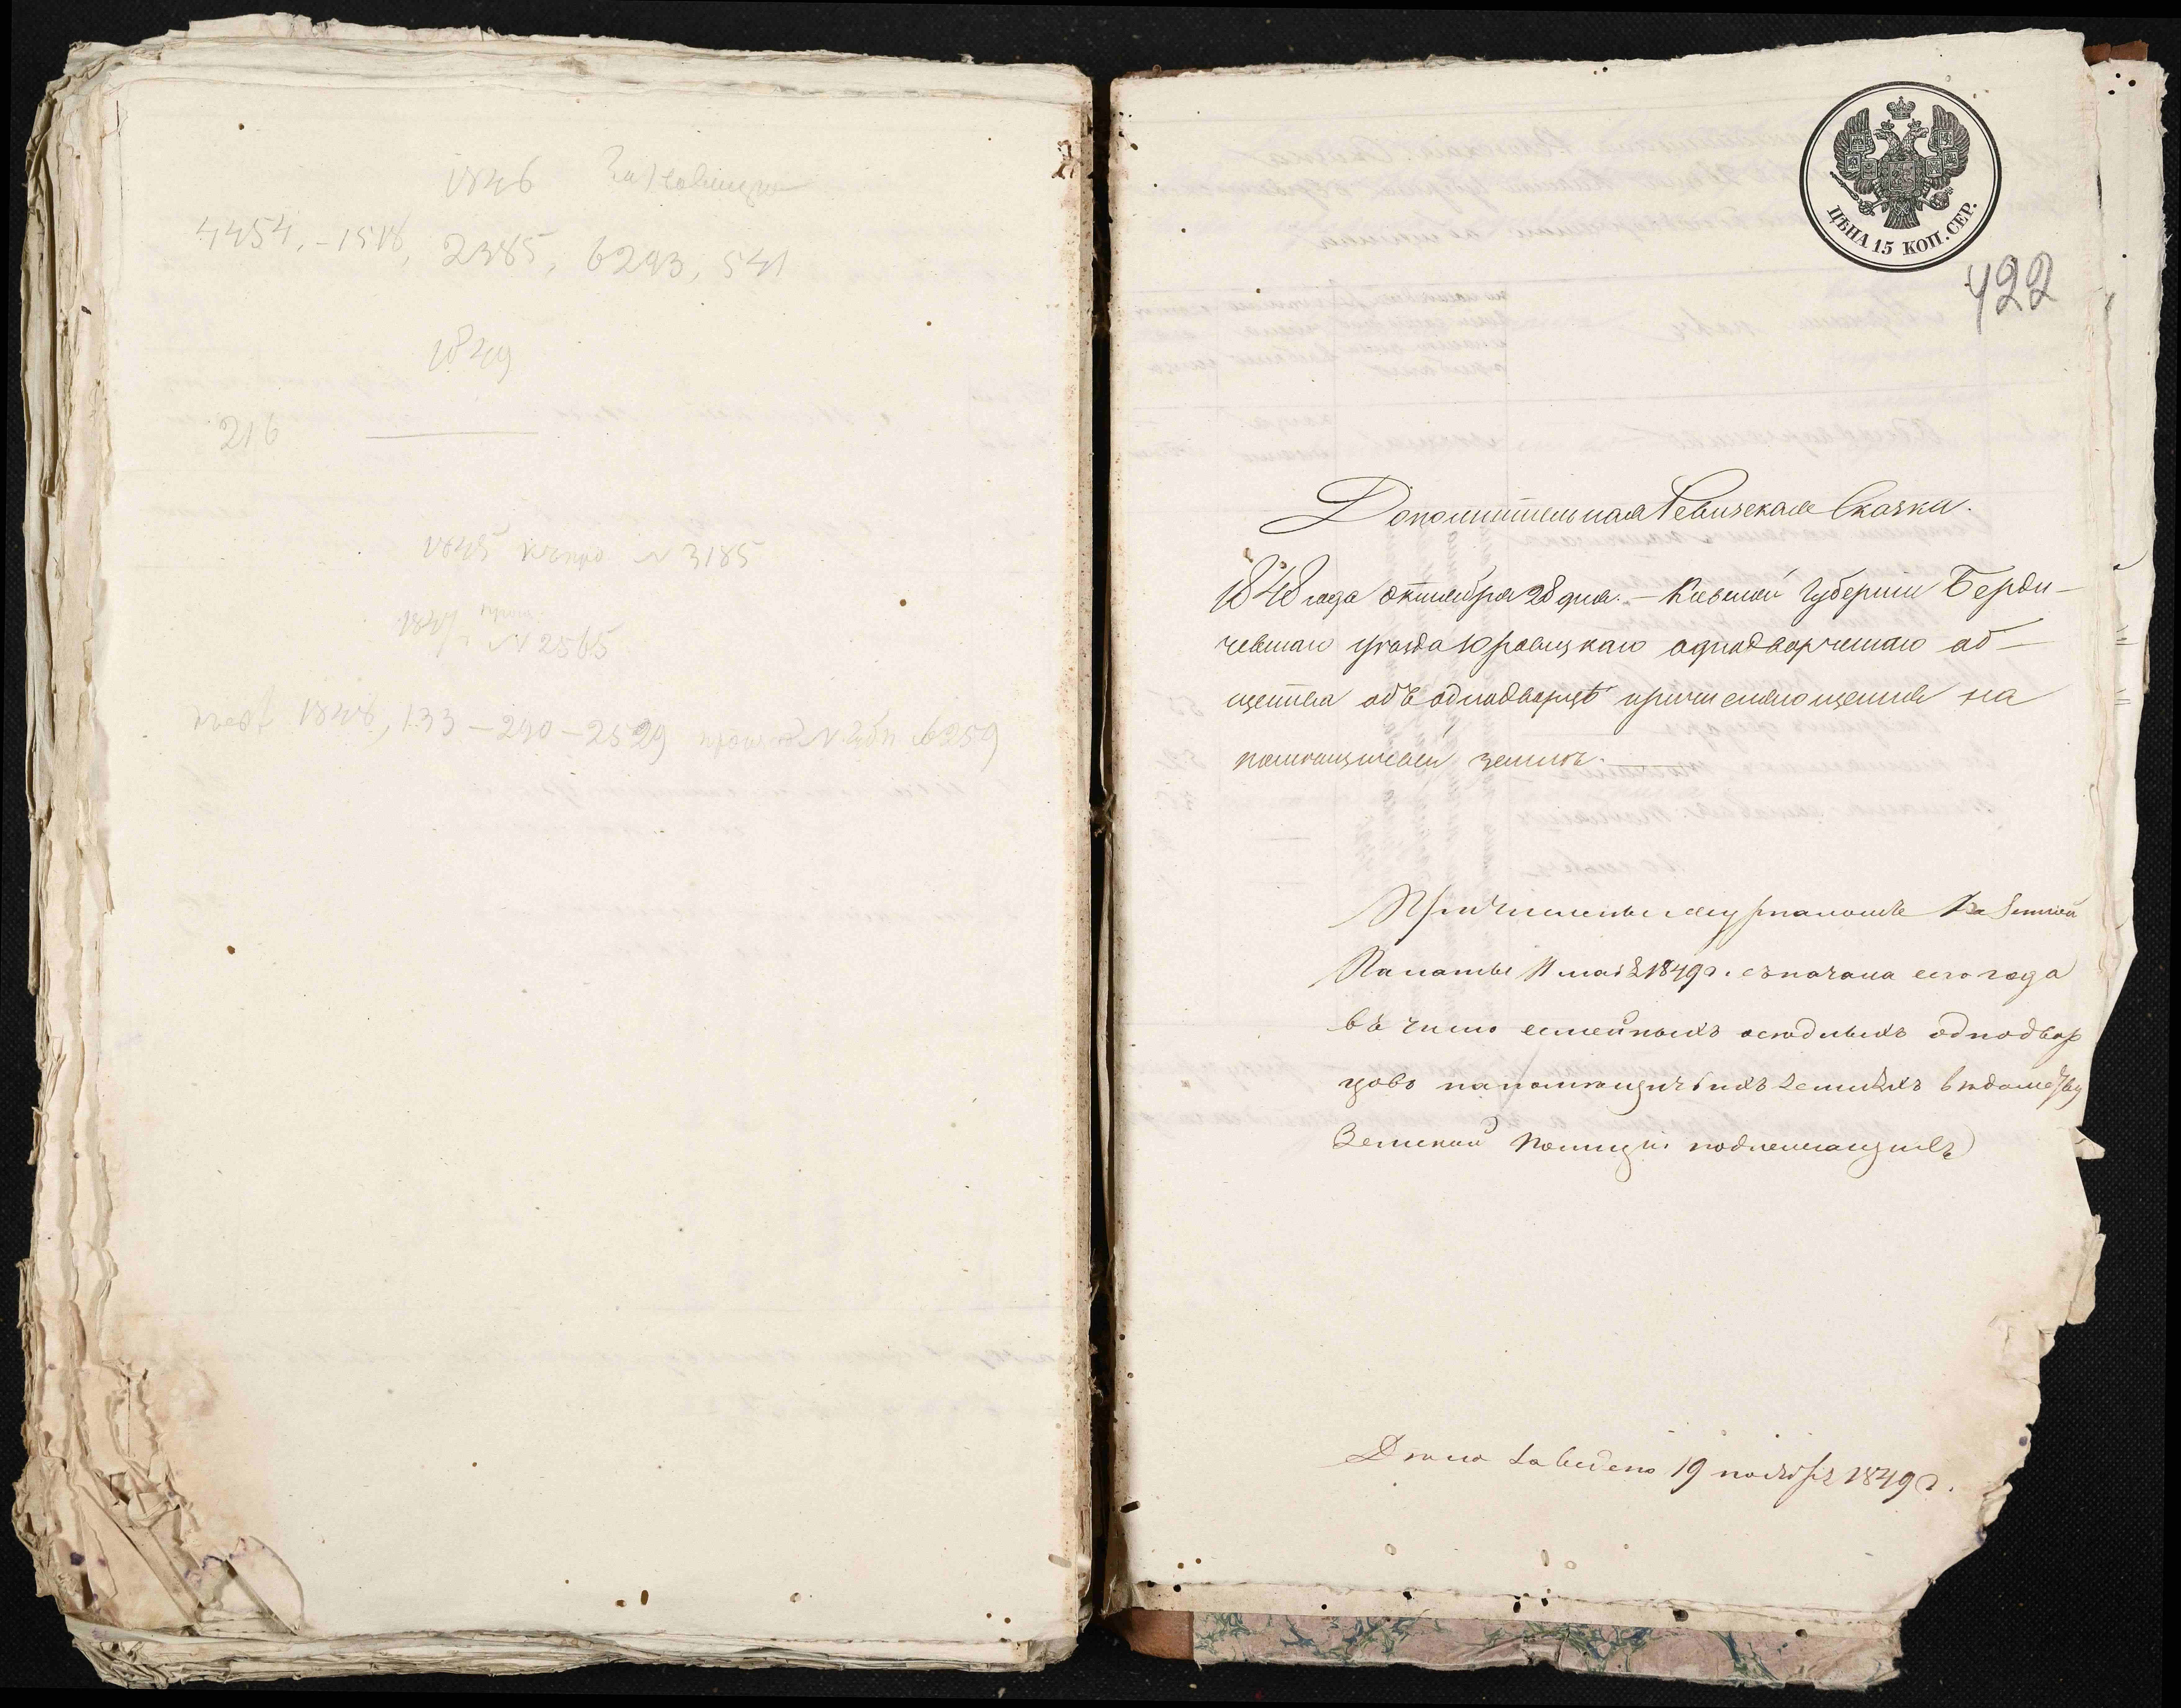 1846
4454, - 1518, 2385, 6293, 541
1849
216
1845 N 3185
1847 N 2565
1848, 133 - 290 - 2529 6259
ЦѢНА 15 КОП. СЕР.
422
Дополнительная Ревизская Сказка.
1848 года октября 28 дня. — Киевской Губернии Берди-
чевскаго уѣзда Юровецкаго однодворческаго об-
щества объ однодворцѣ причисляющемся на
помѣщичьей землѣ.
Причислены журналомъ Казенной
Палаты 11 мая 1849 г. съ начала сего года
въ число семейныхъ осѣдлыхъ однодвор
цовъ на помѣщичьихъ земляхъ вѣдомству
Земской полиціи подлежащихъ
Дѣло заведено 19 ноября 1849 г.